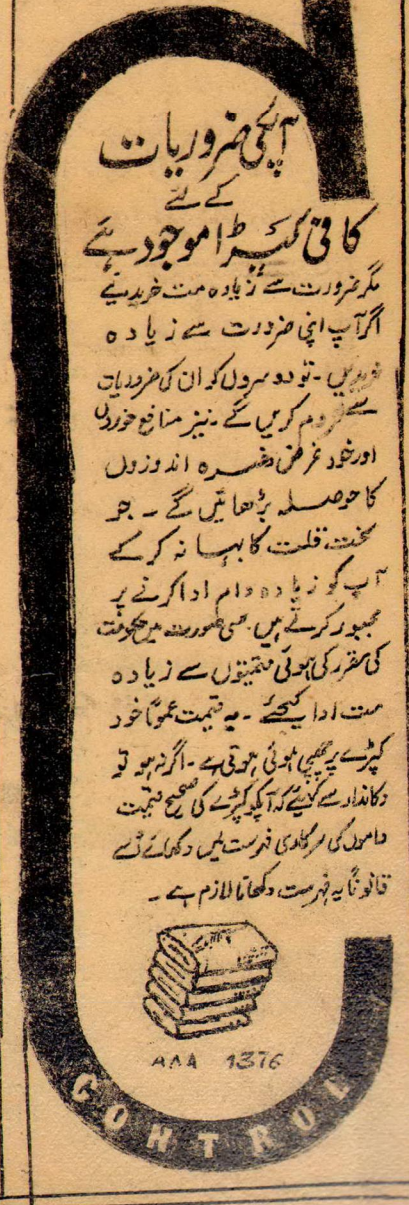 آپکی ضروریات
کے لئے
کافی کپڑا موجود ہے
مگر ضرورت سے زیادہ مت خریدیئے
اگر آپ اپنی ضرورت سے زیادہ
خریدیں ۔ تو دوسروں کو ان کی ضروریات
سے محروم کریں گے ۔ نیز منافع خوروں
اور خود غرض ذخیرہ اندوزوں
کا حوصلہ بڑھائیں گے ۔ جو
سخت قلت کا بہانہ کرکے
آپ کو زیادہ دام ادا کرنے پر
مجبور کرتے ہیں ۔ کسی صورت میں حکومت
کی مقرر کی ہوئی قیمتوں سے زیادہ
مت ادا کیجئے ۔ یہ قیمت عموماً خود
کپڑے پر چھپی ہوئی ہوتی ہے ۔ اگر نہ ہو تو
دکاندار سے کہیئے کہ آپکو کپڑے کی صحیح قیمت
داموں کی سرکاری فہرست میں دکھائے اسے
قانوناً یہ فہرست دکھانا لازم ہے ۔
AAA 1376
CONTROL